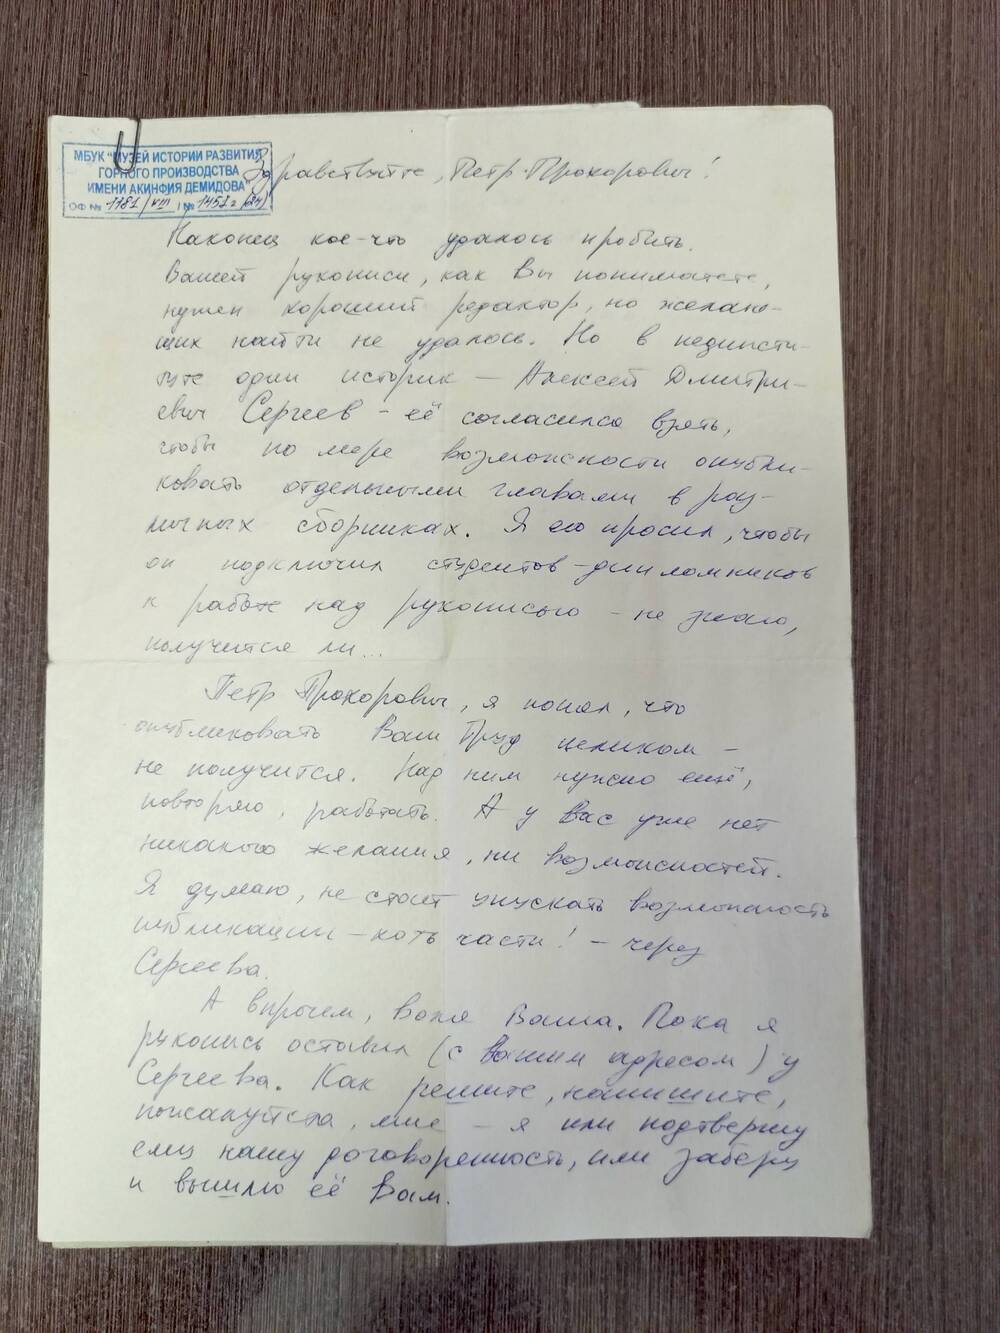 МБУК "МУЗЕЙ ИСТОРИИ РАЗВИТИЯ
ГОРНОГО ПРОИЗВОДСТВА
ИМЕНИ АКИНФИЯ ДЕМИДОВА"
ОФ № 1181/VIII №
Здравствуйте, Петр Прохорович!
Наконец кое-что удалось пробить.
Вашей рукописи, как Вы понимаете,
нужен хороший редактор, но желаю-
щих найти не удалось. Но в пединсти-
туте один историк — Алексей Дмитри-
евич Сергеев - её согласился взять,
чтобы по мере возможности опубли-
ковать отдельными главами в раз-
личных сборниках. Я его просил, чтобы
он подключил студентов-дипломников
к работе над рукописью - не знаю,
получится ли...
Петр Прохорович, я понял, что
опубликовать Ваш Труд целиком -
не получится. Над ним нужно ещё,
повторяю, работать. А у Вас уже нет
никакого желания, ни возможностей.
Я думаю, не стоит упускать возможность
публикации - хоть части! - через
Сергеева.
А впрочем, воля Ваша. Пока я
рукопись оставил (с Вашим адресом) у
Сергеева. Как решите, напишите,
пожалуйста, мне - я или подтвержу
ему нашу договоренность, или заберу
и вышлю её Вам.